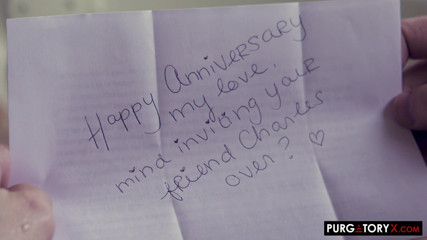 Happy Anniversary
my love,
mind inviting your
friend Charles
over? ♡
PURGATORYX.COM